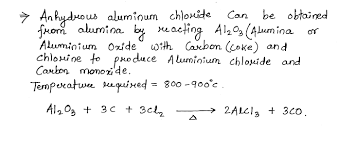 ⇒ Anhydrous aluminum chloride can be obtained
from alumina by reacting Al₂O₃ (Alumina or
Aluminium Oxide with Carbon (coke) and
chlorine to produce Aluminium chloride and
Carbon monoxide.
Temperature required = 800-900°C.
Al₂O₃ + 3C + 3Cl₂ ⟶ 2AlCl₃ + 3CO.
Δ